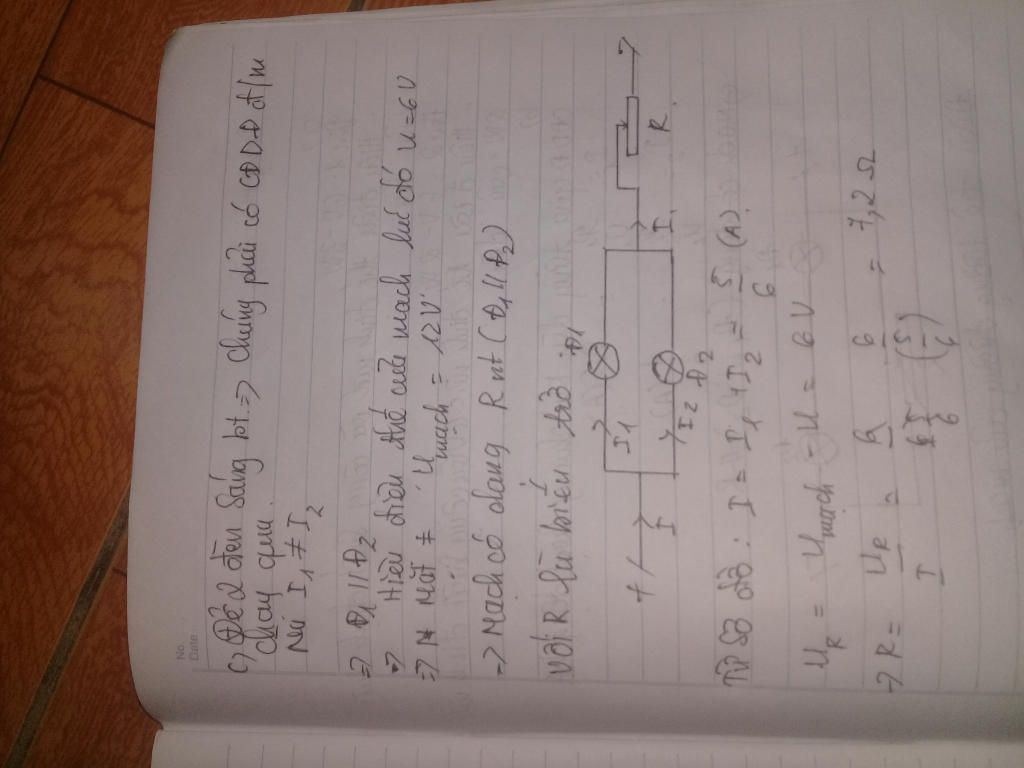 No.
Date
c, Để 2 đèn sáng bt. => chúng phải có CĐDĐ đ/m
chạy qua.
Nà I1 ≠ I2
=> Đ1 // Đ2
=> Hiệu điện thế của mạch lúc đó u = 6V
=> Mặt ≠ . Umạch = 12V.
-> Mạch có dạng R nt (Đ1 // Đ2)
với R là biến trở.
Đ1
I1
+ I I R
I2 Đ2
Từ sơ đồ : I = I1 + I2 = 5/6 (A)
UR = Umạch - U = 6V
-> R = UR/I = 6/(5/6) = 7,2 Ω